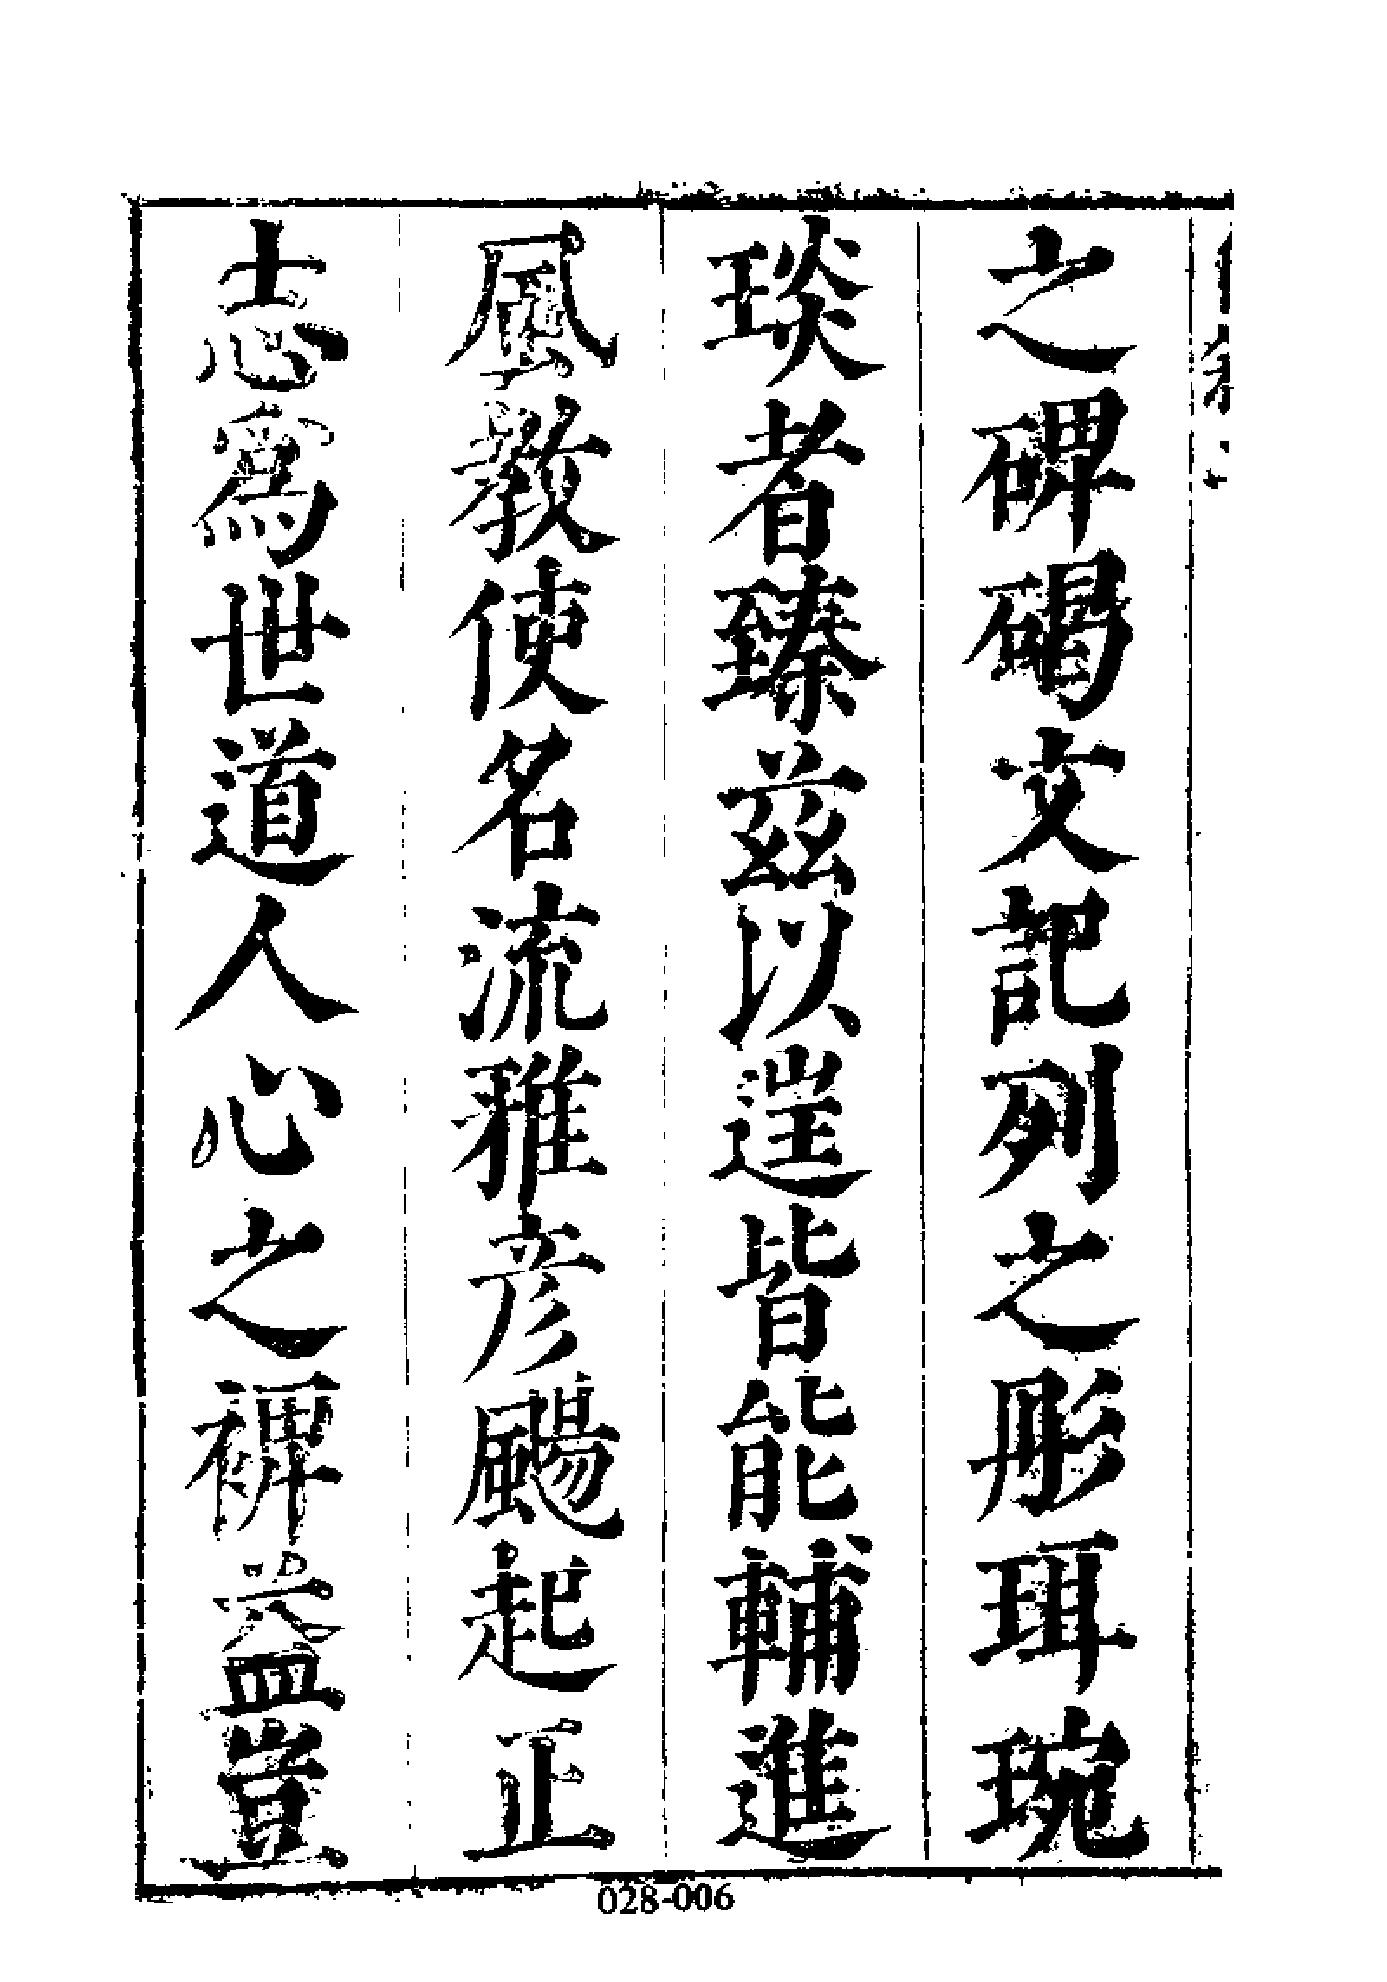 之碑碣文記列之彤珥琬
琰者臻兹以遑皆能輔進
風教使名流雅彦颺起正
志為世道人心之裨益豈
028-006